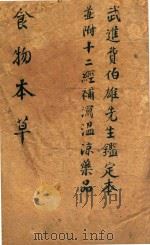 武進費伯雄先生鑑定本
並附十二經補瀉溫涼藥品
食物本草